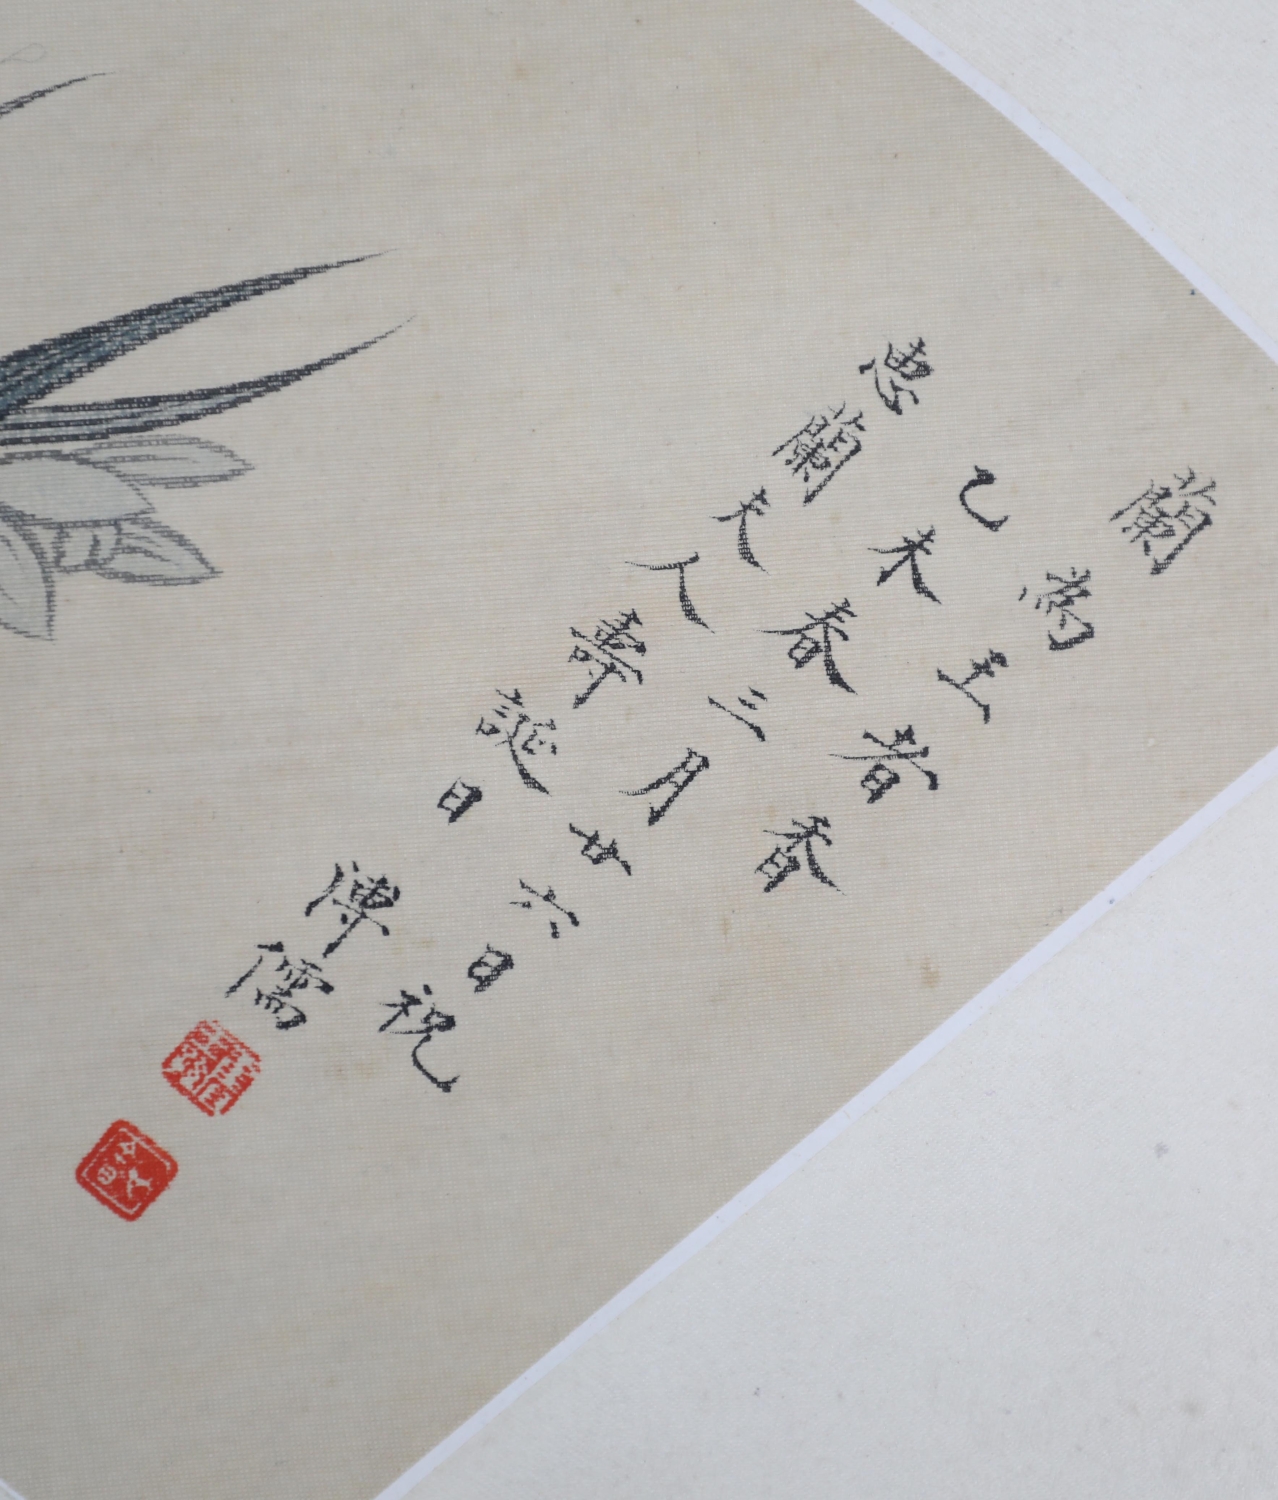 蘭為王者香
己未春三月廿六日祝
惠蘭夫人壽誕日 溥儒